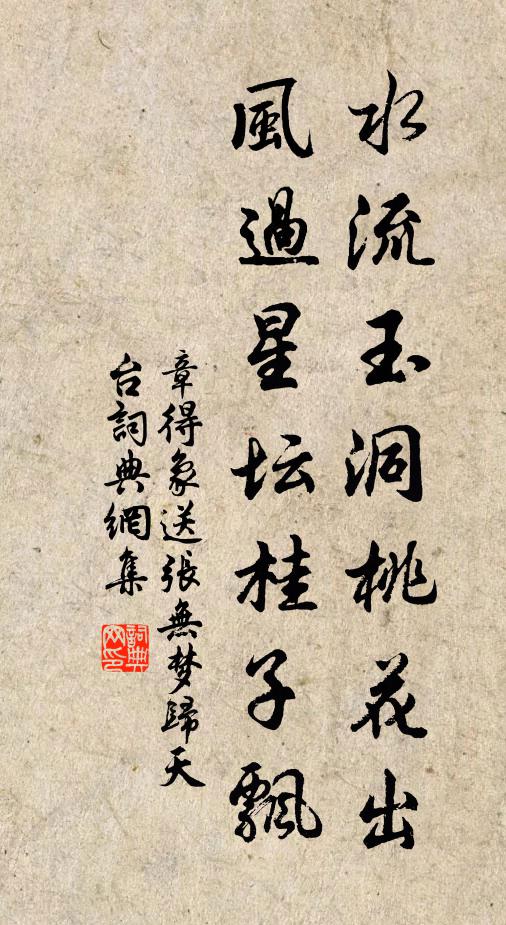 水流玉洞桃花出
風過星坛桂子飄
章得象送張無梦歸天
台詞典網集
詞典
网印